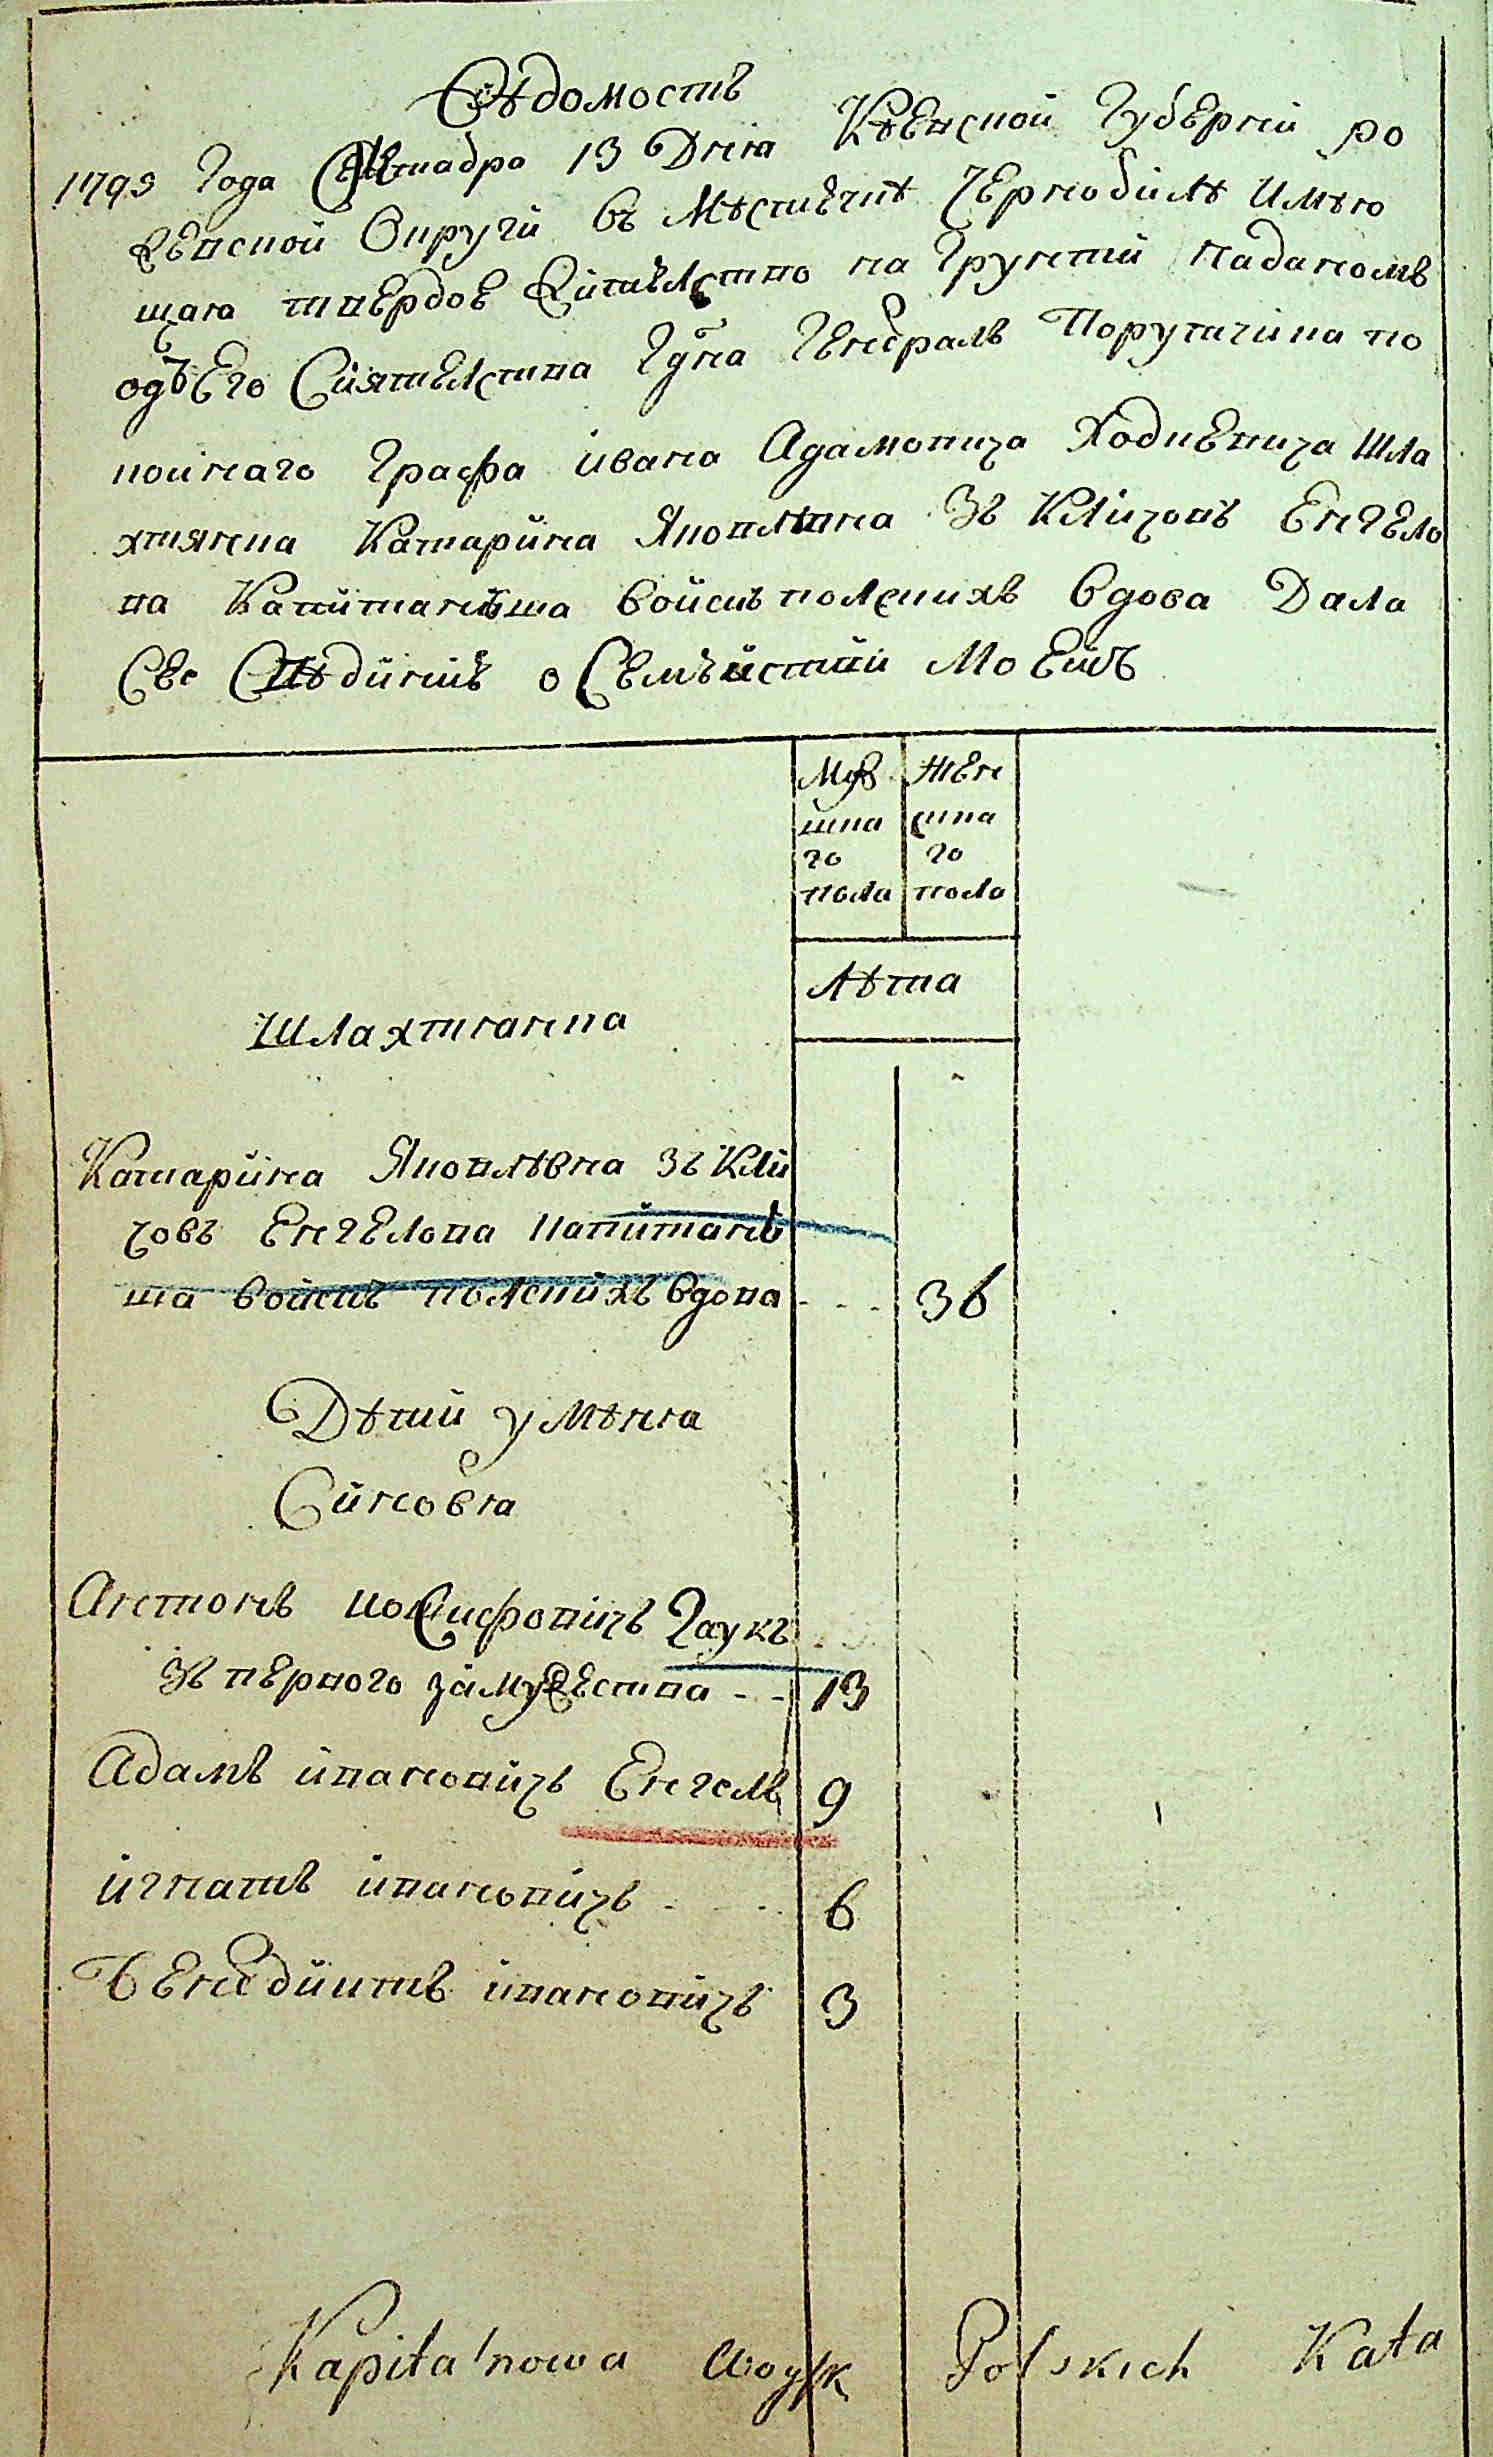 Вѣдомость
1795 Года Октиабра 13 Дния Кѣевской Губерний ро
жевской Округи въ Мѣстечкѣ Чернобилѣ Имѣю
щаго твердое жительство на Грунтй Наданомъ
одъ Его Сиятелства Гдна Генералъ Поручичика по
койнаго Графа ивана Адамовича Ходкевича Шла
хтянка Катарйна Яковлѣвна Зъ Кличовъ Енгело
ва Капйтанъша войскъ полскихъ вдова Дала
Сее Свѣдйниѣ о Семъйствй Моемъ
Муж женс
шка ска
го го
пола пола
Лѣта
Шлахтианка
Катарйна Яковлѣвна зъ Клй
човъ Енгелова капйтанъ
ша войскъ полскйхъ вдова - - - 36
Дѣтий у мѣния
Сйновѣя
Антонъ иосифовичъ Гаукъ
зъ первого замужества - - 13
Адамъ йвановйчъ Енгель 9
йгнатъ йвановйчъ - - 6
Бенедйктъ йвановйчъ 3
Kapitanowa woysk Polskich Kata